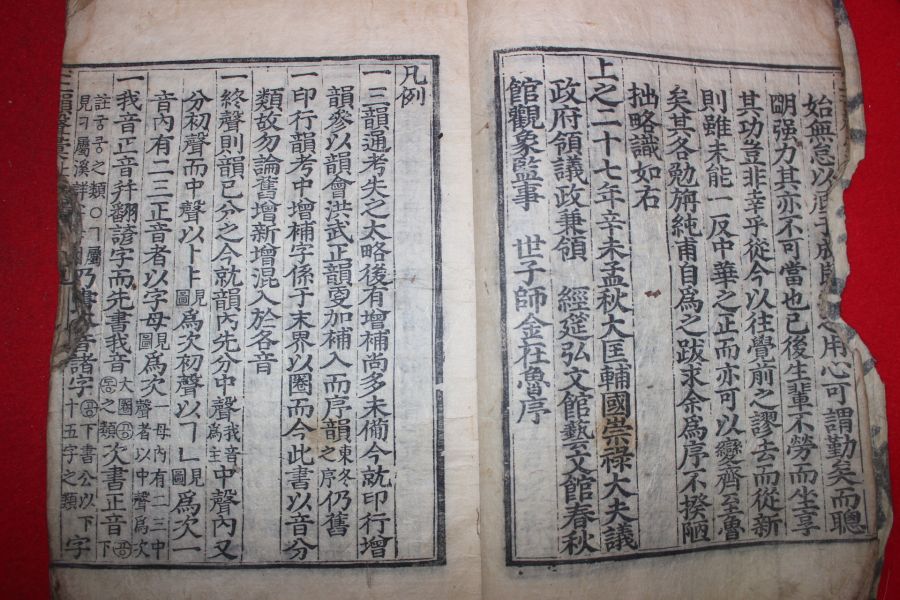 始無怠以底于成用心可謂勤矣而聰
明强力其亦不可當也已後生輩不勞而坐享
其功豈非幸乎從今以往覺前之謬去而從新
則雖未能一反中華之正而亦可以變齊至魯
矣其各勉旃純甫自爲之跋求余爲序不揆陋
拙略識如右
上之二十七年辛未孟秋大匡輔國崇祿大夫議
政府領議政兼領 經筵弘文館藝文館春秋
館觀象監事 世子師金在魯序
凡例
一三韻通考失之太略後有增補尚多未備今就印行增
韻參以韻會洪武正韻更加補入而序韻東冬之序仍舊
一印行韻考中增補字係于末界以圈而今此書以音分
類故勿論舊增新增混入於各音
一終聲則韻已分之今就韻內先分中聲我音中聲爲主中聲內又
分初聲而中聲以ㅏㅑ見圖爲次初聲以ㄱㄴ見圖爲次一
音內有二三正音者以字母見圖爲次一母內有二三中聲者以中聲爲次
一我音正音幷翻諺字而先書我音大圈공동之類次書正音공下
註之類見ㄱ屬溪乃書音諸字공下書公以下十五字之類字